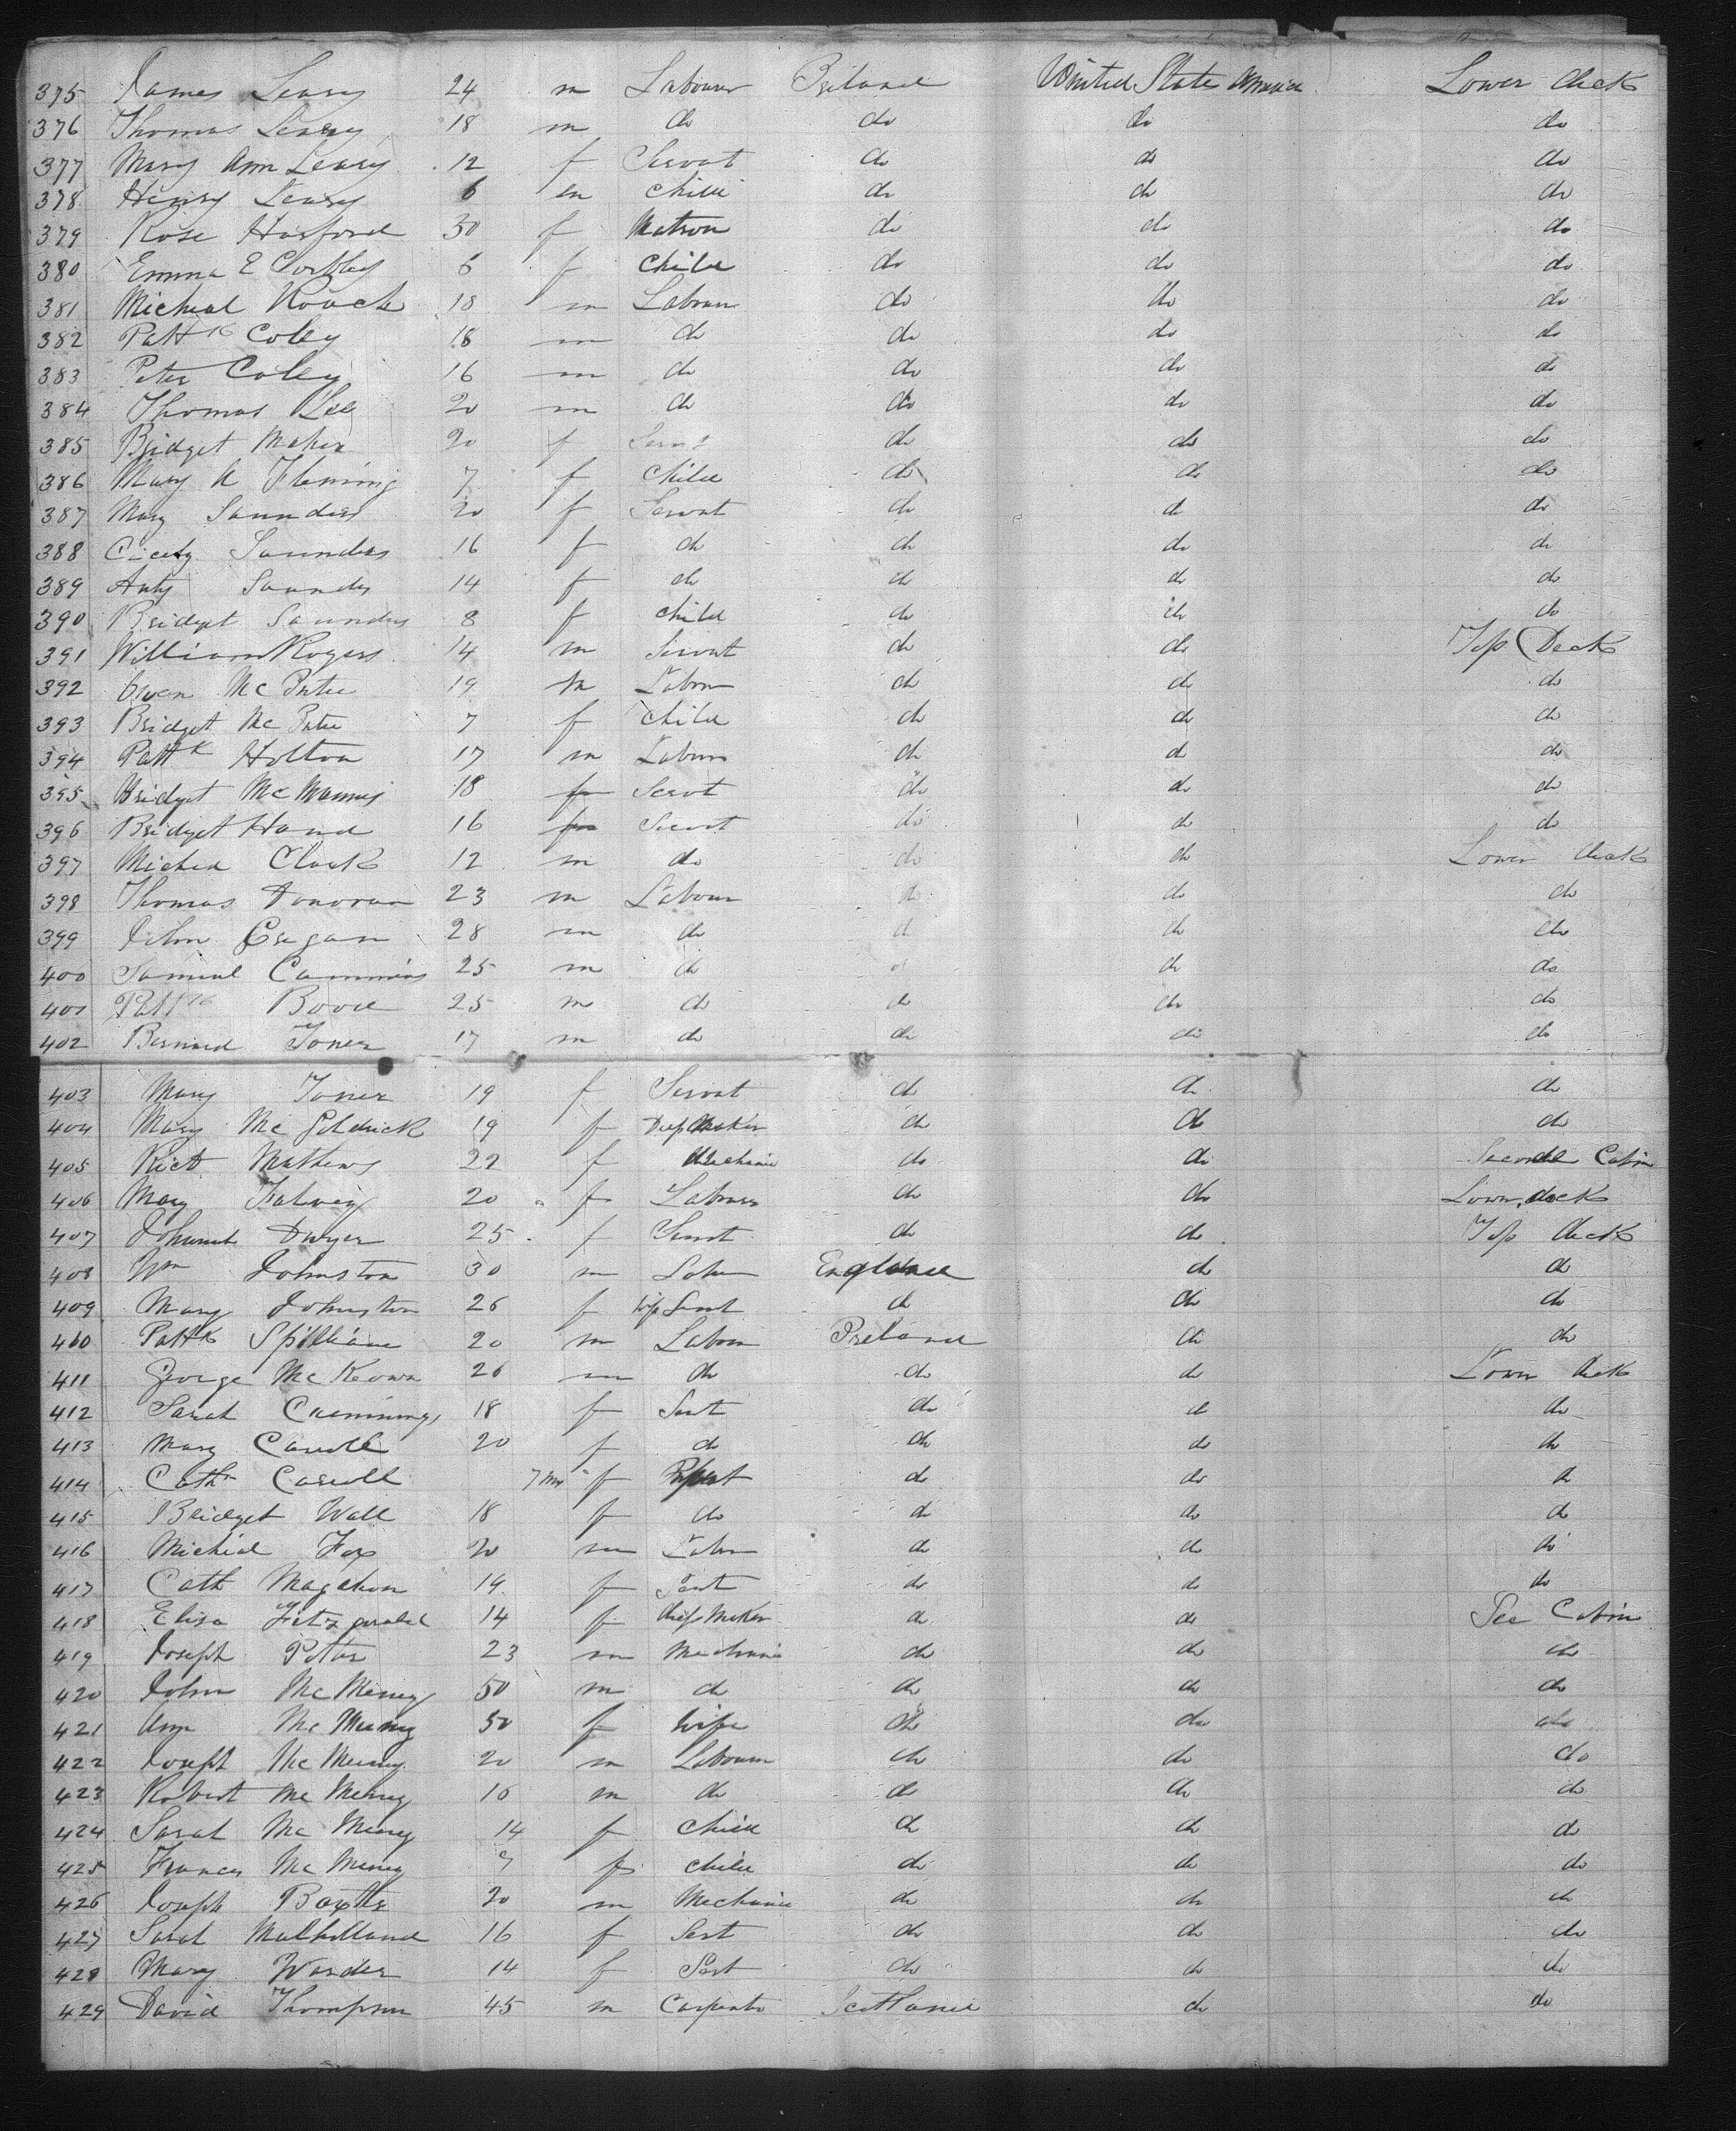 375 James Leary 24 m Labourer Ireland United States America Lower deck
376 Thomas Leary 18 m do do do do
377 Mary Ann Leary 12 f Servat do do do
378 Henry Leary 6 m Child do do do
379 Rose Harford 30 f Matron do do do
380 Emma E Corbley 6 f Child do do do
381 Micheal Roach 18 m Labour do do do
382 Pattk Coley 18 m do do do do
383 Peter Coley 16 m do do do do
384 Thomas Lee 20 m do do do do
385 Bridget Maher 20 f Servt do do do
386 Mary A Fleming 7 f Child do do do
387 Mary Saunders 20 f Servat do do do
388 Cicely Saunders 16 f do do do do
389 Anty Saunders 14 f do do do do
390 Bridget Saunders 8 f Child do do do
391 William Rogers 14 m Servat do do Top Deck
392 Owen Mc 19 m Labour do do do
393 Bridget Mc 7 f Child do do do
394 Pattk Holton 17 m Labour do do do
395 Bridget McMannus 18 f Servt do do do
396 Bridget Hand 16 f Servt do do do
397 Micheal Clark 12 m do do do Lower deck
398 Thomas Donovan 23 m Labour do do do
399 John Gregan 28 m do do do do
400 Samuel Cummins 25 m do do do do
401 Pattk 25 m do do do do
402 Bernard Toner 17 m do do do do
403 Mary Toner 19 f Servat do do do
404 Mary McGoldrick 19 f Dressmaker do do do
405 Richd Mathews 22 f Mechanic do do Second Cabin
406 Mary 20 f Labourer do do Lower deck
407 Johannah Dwyer 25 f Servt do do Top deck
408 Wm Johnston 30 m Labour England do do
409 Mary Johnston 26 f wife Servt do do do
410 Pattk Spillane 20 m Labour Ireland do do
411 George McKeown 26 m do do do Lower deck
412 Sarah Cummings 18 f Servt do do do
413 Mary Carroll 20 f do do do do
414 Cathn Carroll 7 mo f Infant do do do
415 Bridget Wall 18 f do do do do
416 Micheal Fox 20 m Labour do do do
417 Cath Magahon 19 f Servt do do do
418 Eliza Fitzgerald 14 f dressmaker do do Sec Cabin
419 Joseph Peter 23 m Mechanic do do do
420 John McMeney 50 m do do do do
421 Ann McMeney 50 f wife do do do
422 Joseph McMeney 20 m Labourer do do do
423 Robert McMeney 16 m do do do do
424 Sarah McMeney 14 f Child do do do
425 Frances McMeney 9 f Child do do do
426 Joseph Baxter 20 m Mechanic do do do
427 Sarah Mulholland 16 f Servt do do do
428 Mary Warder 14 f Servt do do do
429 David Thompson 45 m Carpenter Scotland do do